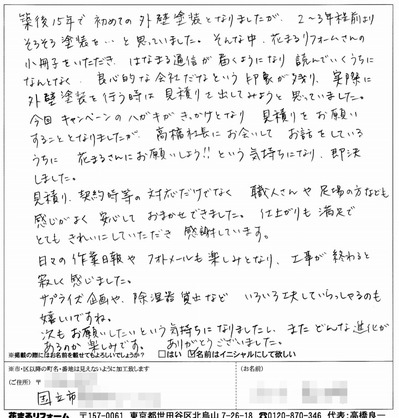 築後15年で初めての外壁塗装となりましたが、2〜3年程前より
そろそろ塗装を…と思っていました。そんな中、花まるリフォームさんの
小冊子をいただき、はなまる通信が届くようになり読んでいくうちに
なんとなく、良心的な会社だなという印象が残り、実際に
外壁塗装を行う時は見積りを出してみようと思っていました。
今回キャンペーンのハガキがきっかけとなり見積りをお願い
することとなりましたが、高橋社長にお会いしてお話をしている
うちに 花まるさんにお願いしよう!!という気持ちになり、即決
しました。
見積り、契約時等の対応だけでなく 職人さんや足場の方なども
感じがよく安心しておまかせできました。仕上がりも満足で
とてもきれいにしていただき感謝しています。
日々の作業日報やフォトメールも楽しみとなり、工事が終わると
寂しく感じました。
サプライズ企画や、除湿器貸出など いろいろ工夫していらっしゃるのも
嬉しいですね。
次もお願いしたいという気持ちになりましたし、またどんな進化が
あるのか楽しみです。 ありがとうございました。
※掲載の際にはお名前を載せてもよろしいでしょうか? □はい ☑名前はイニシャルにして欲しい
※市・区以降の町名・番地は見えないように加工致します
(ご住所) 〒 (お名前)
国立市
花まるリフォーム 〒157-0061 東京都世田谷区北烏山7-26-18 ☎0120-870-346 代表:高橋良一